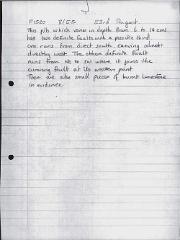 F1500 8/155 23rd August
This pit, which varies in depth from 6 to 14 cms
has two definite faults with a possible third.
one runs from direct south, curving almost
directly west. The other definite fault
runs from NE to SW where it joins the
curving fault at its western point.
There are also small pieces of burnt limestone
in evidence.